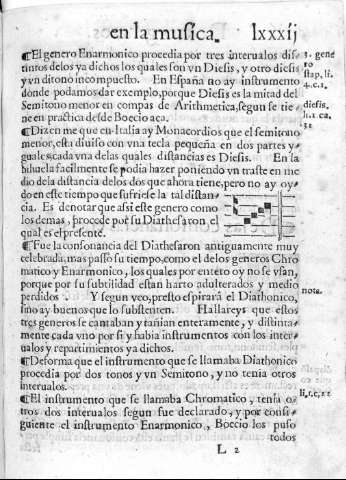 en la musica. lxxxij
¶El genero Enarmonico procedia por tres interualos dis-
tintos delos ya dichos los quales son vn Diesis, y otro diesis
y vn ditono incompuesto. En España no ay instrumento
donde podamos dar exemplo, porque Diesis es la mitad del
Semitono menor en compas de Arithmetica, segun se tie-
ne en practica desde Boecio aca.
3. gene
ro
stap, li.
4.c.1,
diesis.
li.1. ca.
¶Dizen me que en Italia ay Monacordios que el semitono
menor, esta diuiso con vna tecla pequeña en dos partes y-
guales; cada vna delas quales distancias es Diesis. En la
bihuela facilmente se podia hazer poniendo vn traste en me
dio dela distancia delos dos que ahora tiene, pero no ay oy-
do en este tiempo que sufriesse la tal distan-
cia. Es denotar que assi este genero como
los demas, procede por su Diathesaron el
qual es el presente.
¶Fue la consonancia del Diathesaron antiguamente muy
celebrada, mas passo su tiempo, como el de los generos Chro
matico y Enarmonico, los quales por entero oy no se vsan,
porque por su subtilidad estan harto adulterados y medio
perdidos. Y segun veo, presto espirará el Diathonico,
sino ay buenos que lo substenten. Hallareys que estos
tres generos se cantauan y tañian enteramente, y distinta-
mente cada vno por si y hauia instrumentos con los inter-
ualos y repartimientos ya dichos.
nota.
¶Deforma que el instrumento que se llamaba Diathonico
procedia por dos tonos y vn Semitono, y no tenia otros
interualos.
¶El instrumento que se llamaba Chromatico, tenia o-
tros dos interualos segun fue declarado, y por consi-
guiente el instrumento Enarmonico, Boecio los puso
todos
L 2